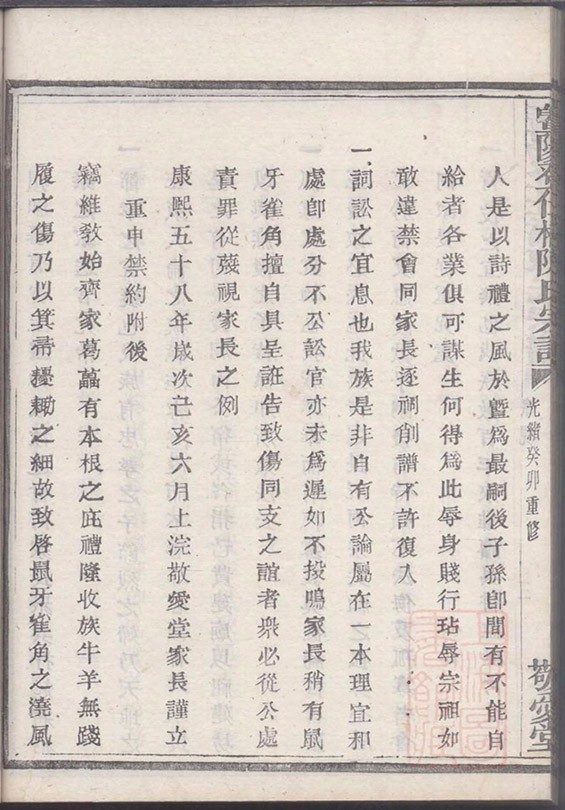 陳氏宗譜
光緒癸卯重修
敬愛堂
人是以詩禮之風於暨爲最嗣後子孫卽間有不能自
給者各業俱可謀生何得爲此辱身賤行玷辱宗祖如
敢違禁會同家長逐祠削譜不許復入
一詞訟之宜息也我族是非自有公論屬在一本理宜和
處卽處分不公訟官亦未爲遲如不投鳴家長稍有鼠
牙雀角擅自具呈誑告致傷同支之誼者衆必從公處
責罪從蔑視家長之例
康熙五十八年歲次己亥六月上浣敬愛堂家長謹立
重申禁約附後
竊維敎始齊家葛藟有本根之庇禮隆收族牛羊無踐
履之傷乃以箕帚耰鋤之細故致啓鼠牙雀角之澆風